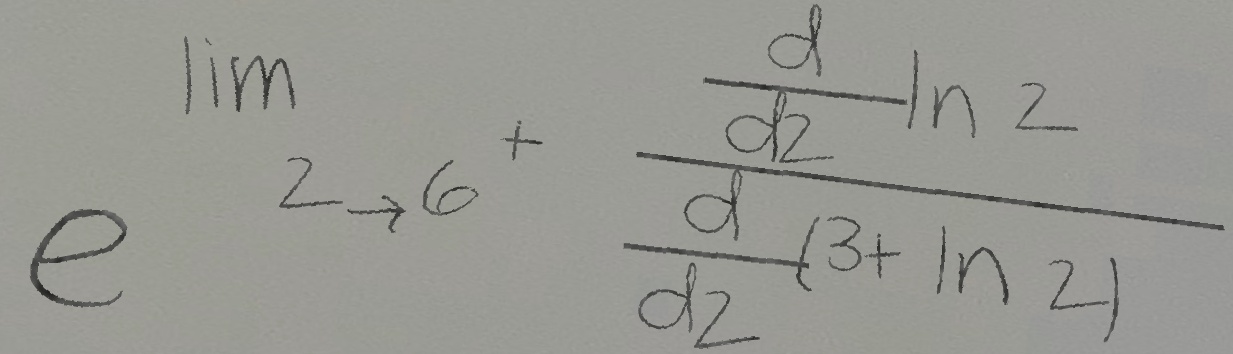 e^{\lim_{z \to 6^+} \frac{\frac{d}{dz} \ln z}{\frac{d}{dz} (3 + \ln z)}}